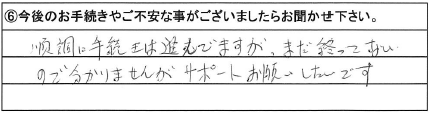 ⑥今後のお手続きやご不安な事がございましたらお聞かせ下さい。
順調に手続きは進んでますが、まだ終ってない
ので分かりませんがサポートお願いしたいです